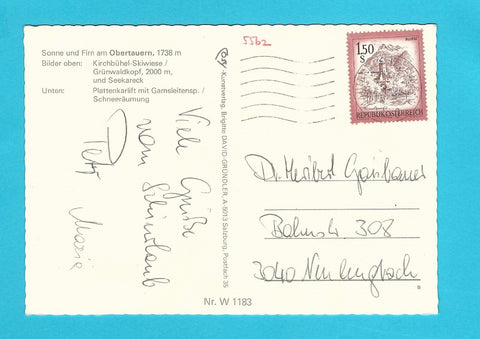 Sonne und Firn am Obertauern. 1738 m
Bilder oben: Kirchbühel-Skiwiese /
Grünwaldkopf, 2000 m,
und Seekareck
Unten: Plattenkarlift mit Gamsleitensp. /
Schneeräumung
5562
Kunstverlag, Brigitte DAVID-GRÜNDLER, A-5013 Salzburg, Postfach 35
Viele Grüße
vom Skiurlaub
Maria
1.50
S
REPUBLIK ÖSTERREICH
Dr. Heribert
Bahnstr. 308
3040 Neulengbach
Nr. W 1183